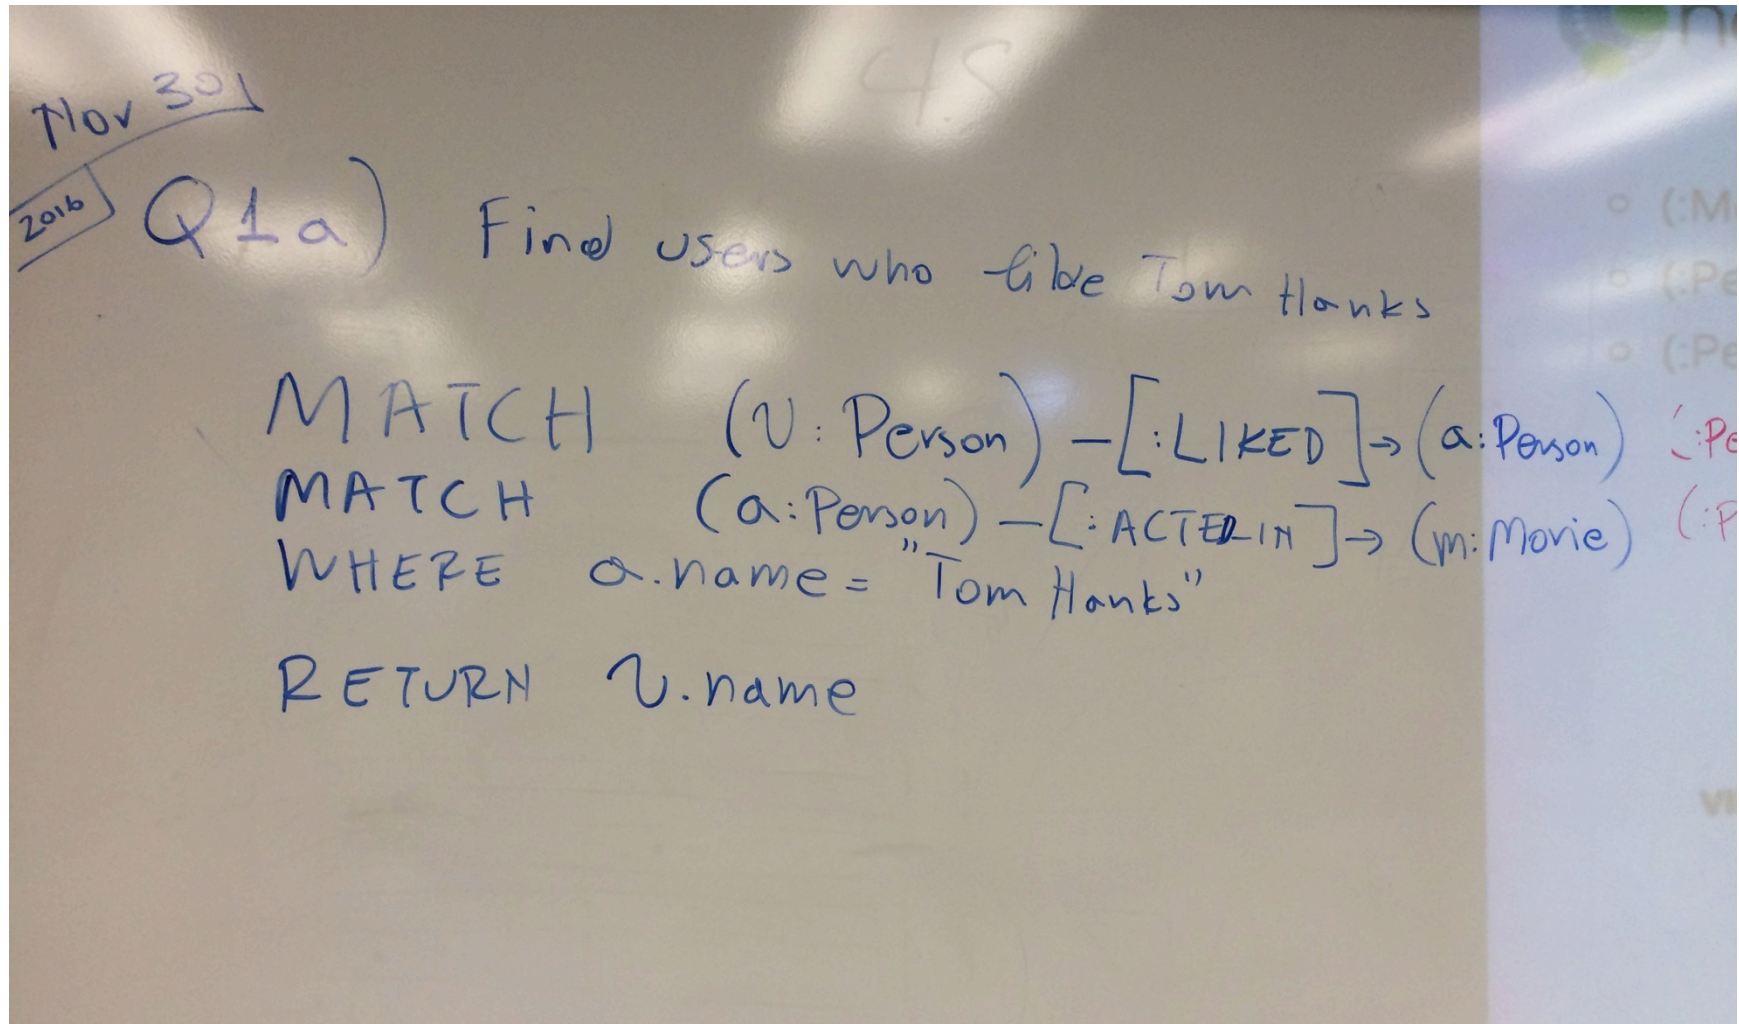 Nov 30
2016
Q1a) Find users who like Tom Hanks
MATCH (u:Person)-[:LIKED]->(a:Person)
MATCH (a:Person)-[:ACTED_IN]->(m:Movie)
WHERE a.name = "Tom Hanks"
RETURN u.name
(:M
(:Pe
(:Pe
(:Pe
(:P